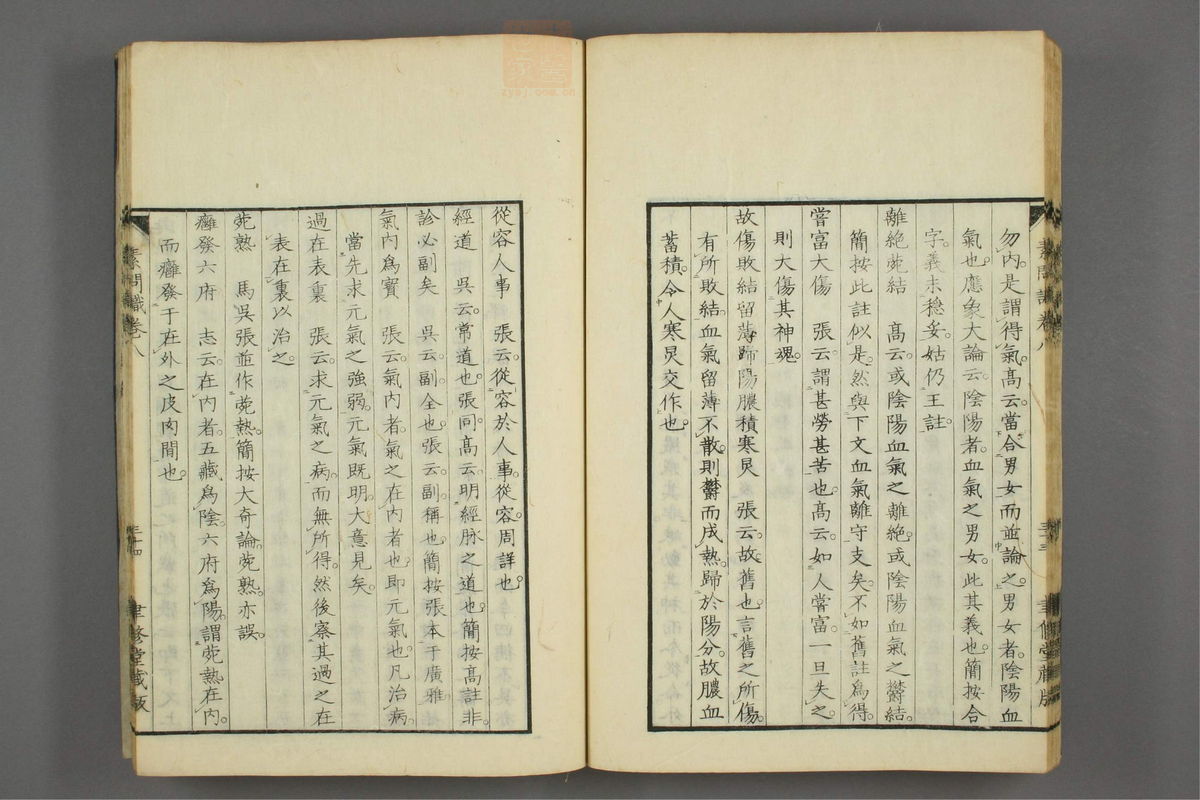 勿內是謂得氣高云當合男女而並論之男女者陰陽血
氣也應象大論云陰陽者血氣之男女此其義也簡按合
字義未穩妥姑仍王註
離絕菀結　高云或陰陽血氣之離絕或陰陽血氣之鬱結
簡按此註似是然與下文血氣離守支矣不如舊註爲得
嘗富大傷　張云謂甚勞甚苦也高云如人嘗富一旦失之
則大傷其神魂
故傷敗結留薄歸陽膿積寒炅　張云故舊也言舊之所傷
有所敗結血氣留薄不散則鬱而成熱歸於陽分故膿血
蓄積令人寒炅交作也
素問識卷八
三十三
聿修堂藏版
從容人事　張云從容於人事從容周詳也
經道　吳云常道也張同高云明經脉之道也簡按高註非
診必副矣　吳云副全也張云副稱也簡按張本于廣雅
氣內爲寶　張云氣內者氣之在內者也卽元氣也凡治病
當先求元氣之強弱元氣旣明大意見矣
過在表裏　張云求元氣之病而無所得然後察其過之在
表在裏以治之
菀熟　馬吳張並作菀熱簡按大奇論菀熟亦誤
癰發六府　志云在內者五藏爲陰六府爲陽謂菀熱在內
而癰發于在外之皮肉間也
素問識卷八
三十四
聿修堂藏版